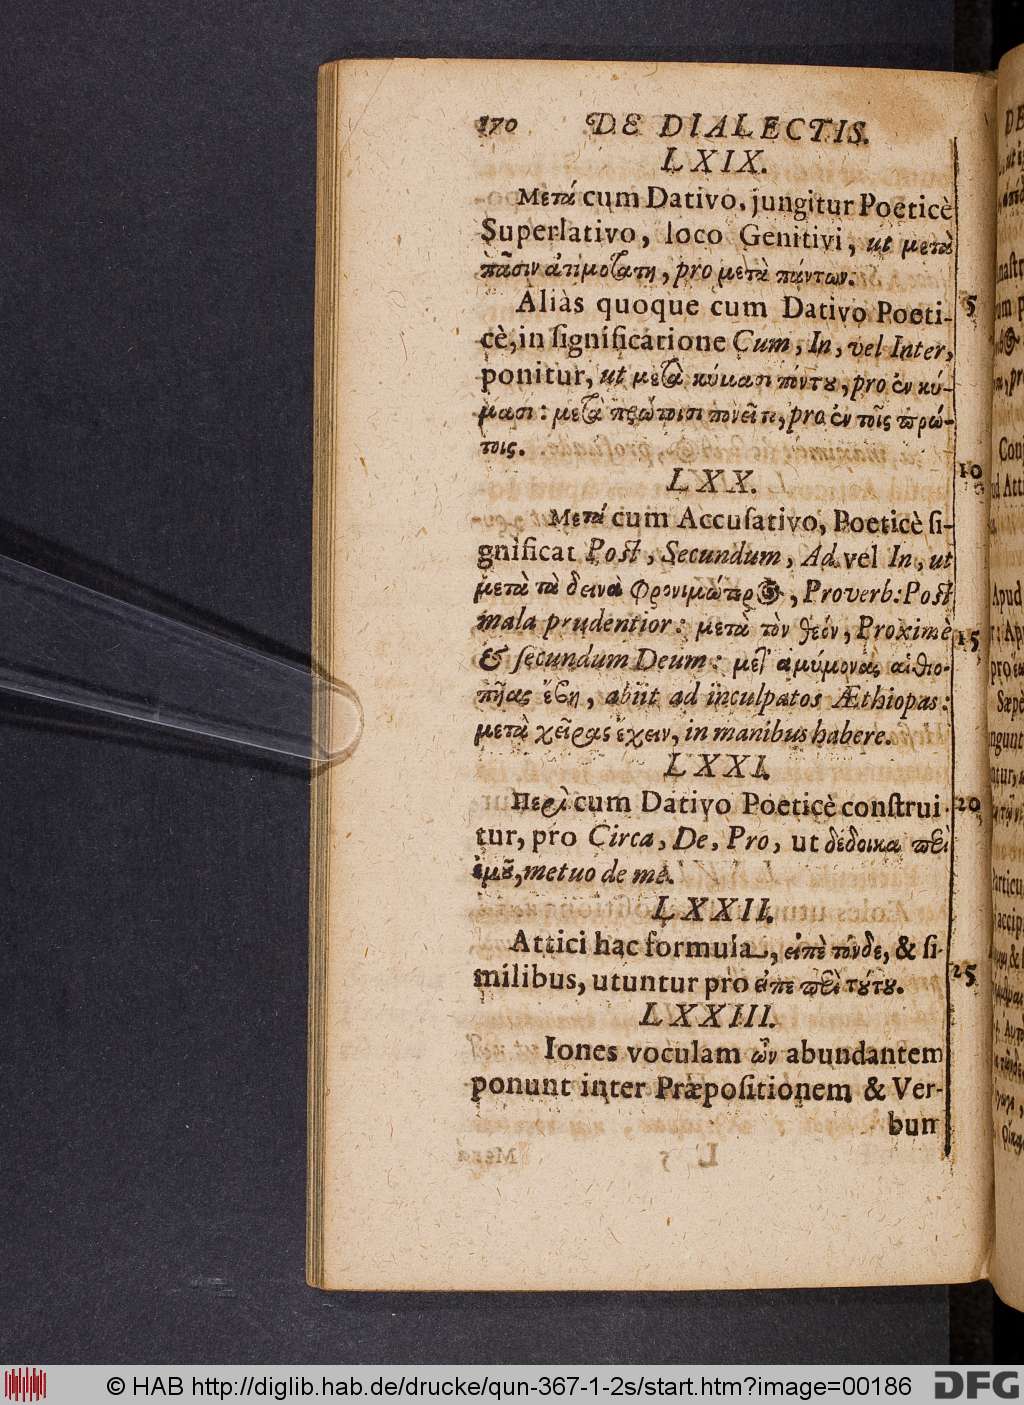 170 DE DIALECTIS.
LXIX.
Μετά cum Dativo, jungitur Poeticè
Superlativo, loco Genitivi, ut μετὰ
πᾶσιν ἀτιμοτάτη, pro μετὰ πάντων.
Aliàs quoque cum Dativo Poeti- 5
cè, in ſignificatione Cum, In, vel Inter,
ponitur, ut μετὰ κύμασι πόντου, pro ἐν κύ-
μασι: μετὰ πρώτοισι πονεῖτι, pro ἐν τοῖς πρώ-
τοις.
LXX. 10
Μετά cum Accuſativo, Poeticè ſi-
gnificat Poſt, Secundum, Ad vel In, ut
μετὰ τὰ δεινὰ φρονιμώτερος, Proverb: Poſt
mala prudentior: μετὰ τὸν θεόν, Proximè 15
& ſecundum Deum: μετ' ἀμύμονας αἰθιο-
πῆας ἔβη, abiit ad inculpatos Æthiopas:
μετὰ χεῖρας ἔχειν, in manibus habere.
LXXI.
Περὶ cum Dativo Poeticè conſtrui- 20
tur, pro Circa, De, Pro, ut δέδοικα περὶ
ἐμοῦ, metuo de me.
LXXII.
Attici hac formula, εἰπὲ τόνδε, & ſi-
milibus, utuntur pro εἰπε περὶ τούτου. 25
LXXIII.
Iones voculam ὦν abundantem
ponunt inter Præpoſitionem & Ver-
bum
© HAB http://diglib.hab.de/drucke/qun-367-1-2s/start.htm?image=00186 DFG